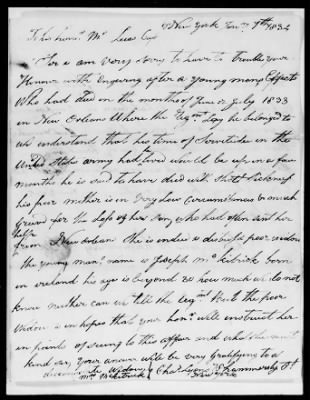 New York Jany 7th 1834
To his honr. Mr Lews Cas
For I am very sorry to have to trouble your
Honour with Inquring after a young mans Effects
Who had died in the months of June or July 1833
in New Orleans Where the Regmt Say he belonged to
us understand that his time of Servitude in the
United States army had lived would be up in a few
months he is said to have died with that Sickness
his poor mother is in very Low Circumstances & much
Grieved for the Loss of her Son, who had
from New Orleans She is indeed a disolute poor widow
the young mans name is Joseph Mc Kitrick born
in Ireland his age is beyond 30 how much we do not
know neither can we tell the Regmt But the poor
Widow is in hopes that your honr. will instruct her
in points of seeing to this affair and
kind sir, your answer will be very gratifying to a
disconsolate Widow
Mrs McKitrick Chas Lucas 5 Hammersly St
New York